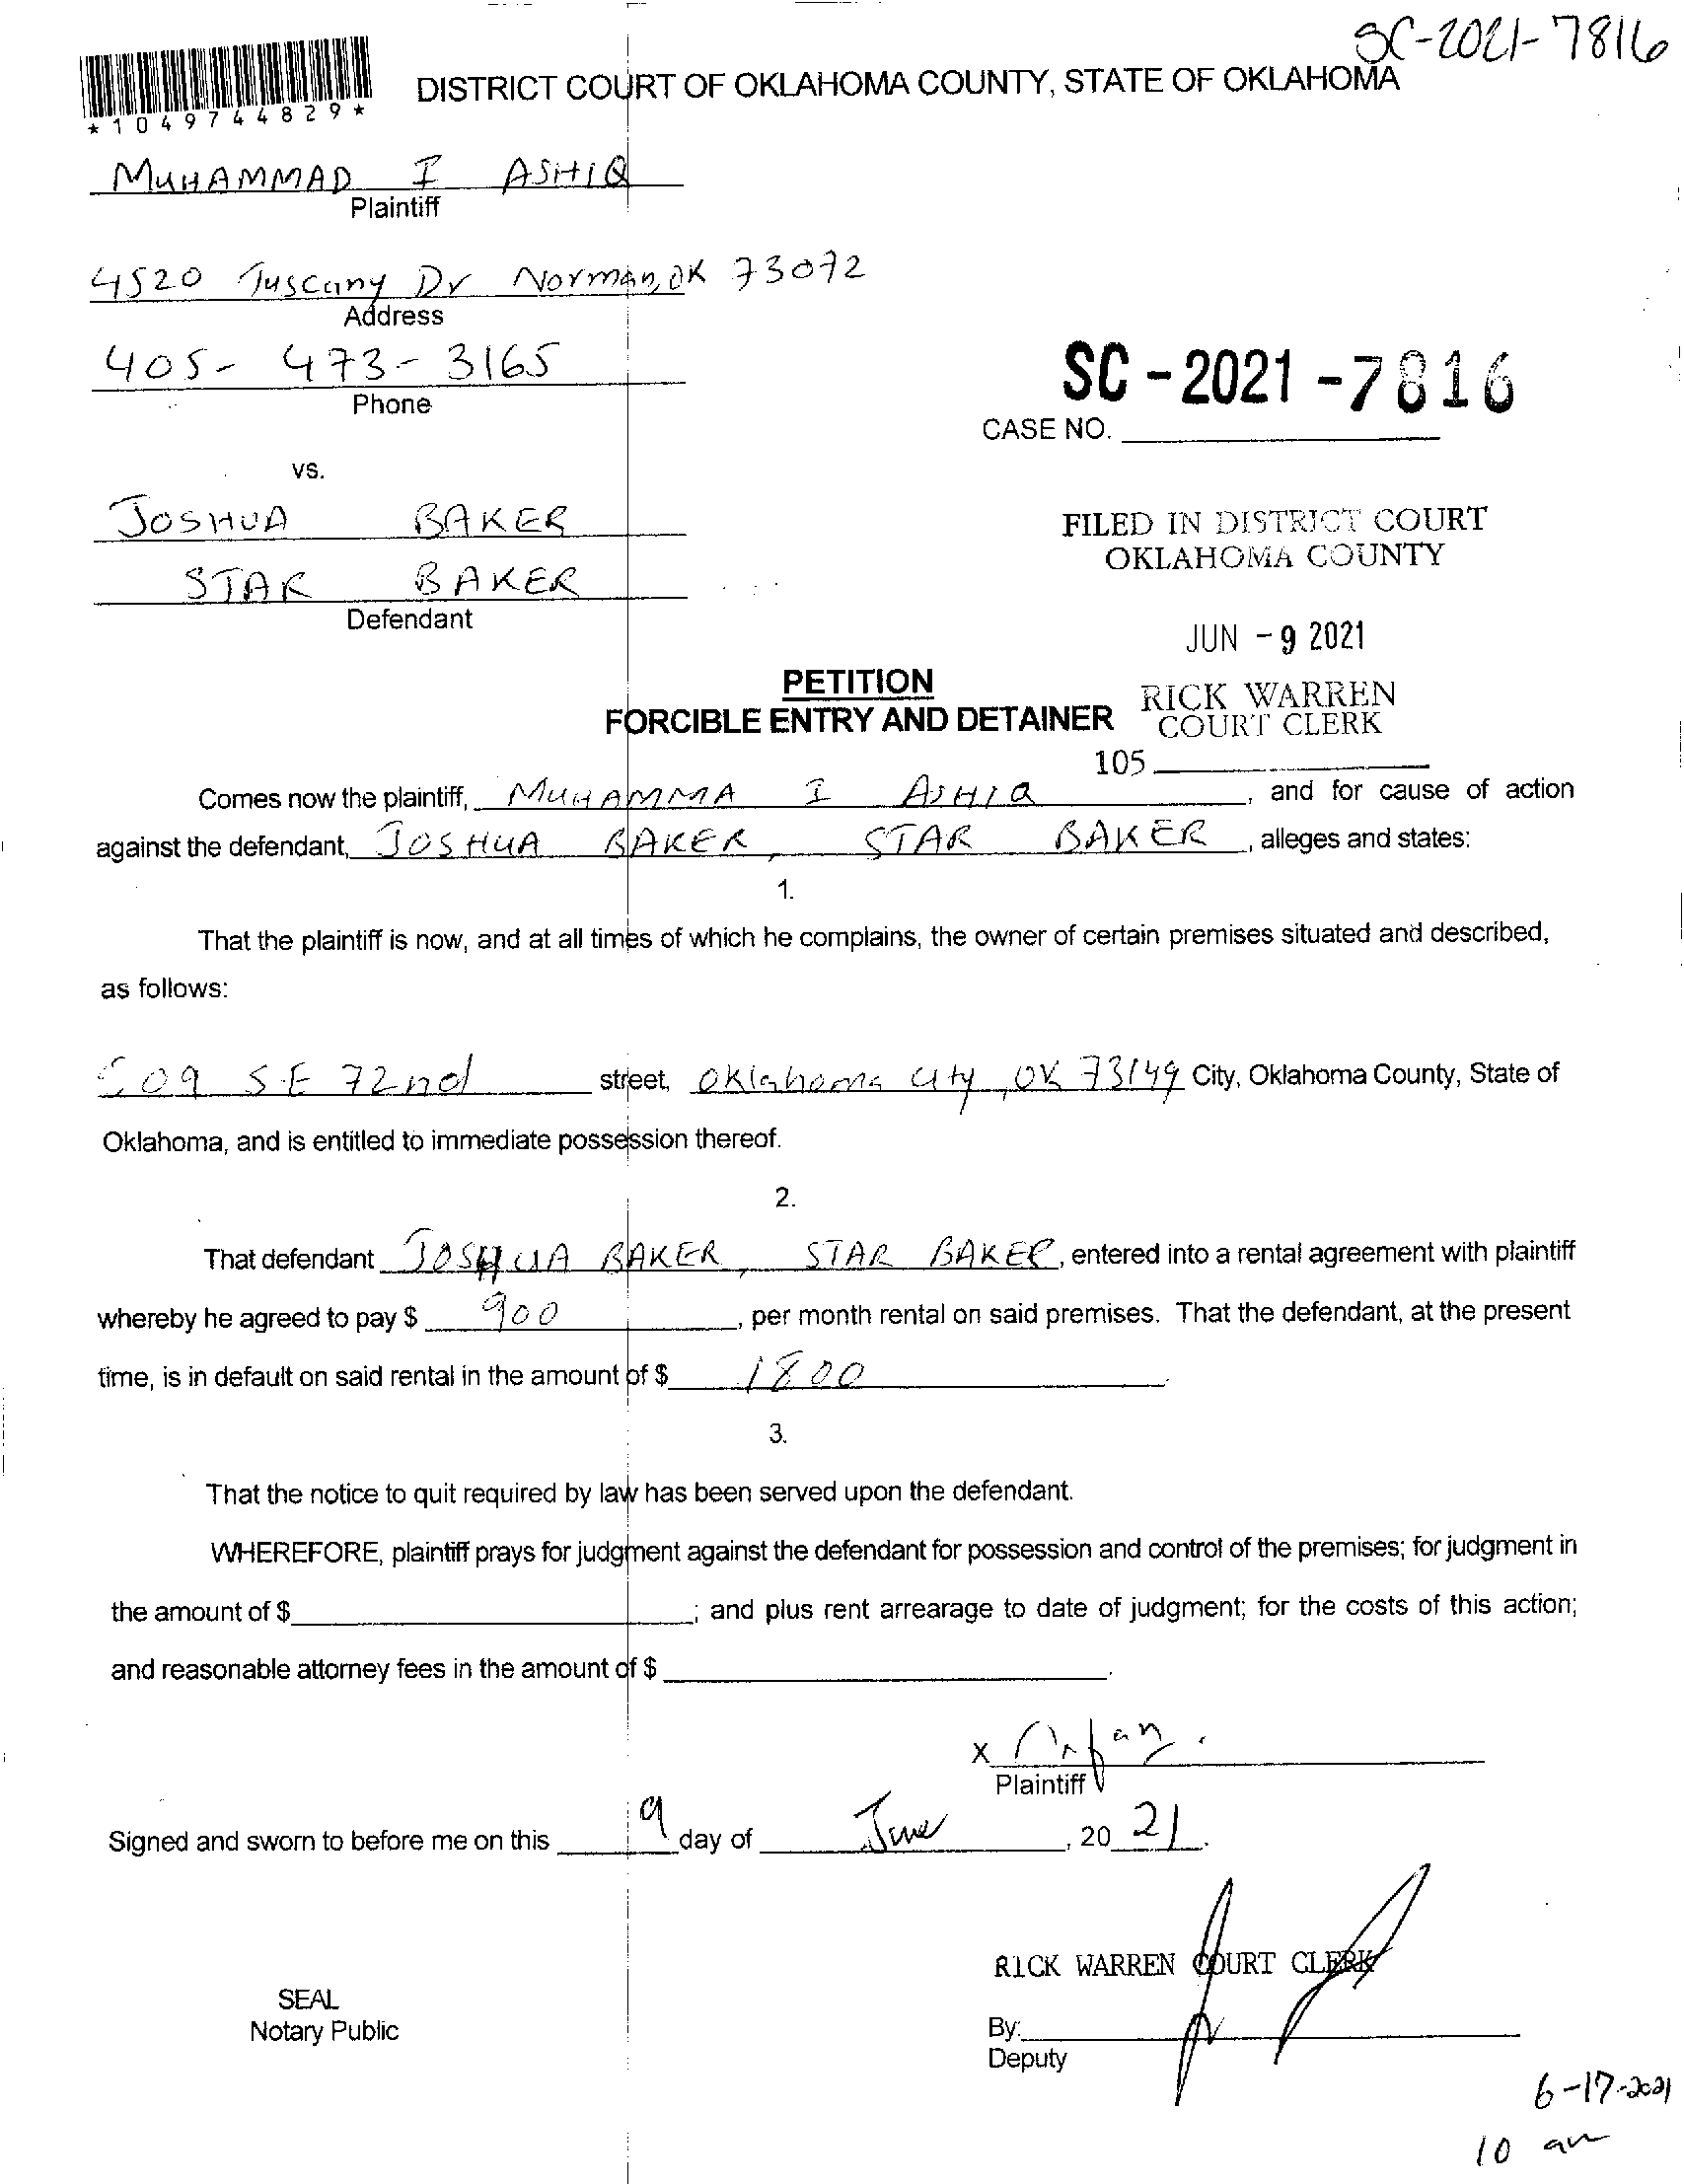 SC-2021-7816
DISTRICT COURT OF OKLAHOMA COUNTY, STATE OF OKLAHOMA
*1049744829*
MUHAMMAD I ASHIQ
Plaintiff
4520 Tuscany Dr Norman, OK 73072
Address
405-473-3165
Phone
SC-2021-7816
CASE NO.
vs.
JOSHUA BAKER
STAR BAKER
Defendant
FILED IN DISTRICT COURT
OKLAHOMA COUNTY
JUN -9 2021
PETITION
FORCIBLE ENTRY AND DETAINER
RICK WARREN
COURT CLERK
105
Comes now the plaintiff, MUHAMMA I ASHIQ, and for cause of action
against the defendant, JOSHUA BAKER, STAR BAKER, alleges and states:
1.
That the plaintiff is now, and at all times of which he complains, the owner of certain premises situated and described,
as follows:
SE 72nd street, Oklahoma City, OK 73149 City, Oklahoma County, State of
Oklahoma, and is entitled to immediate possession thereof.
2.
That defendant JOSHUA BAKER, STAR BAKER, entered into a rental agreement with plaintiff
whereby he agreed to pay $ 900, per month rental on said premises. That the defendant, at the present
time, is in default on said rental in the amount of $ 1800
3.
That the notice to quit required by law has been served upon the defendant.
WHEREFORE, plaintiff prays for judgment against the defendant for possession and control of the premises; for judgment in
the amount of $; and plus rent arrearage to date of judgment; for the costs of this action;
and reasonable attorney fees in the amount of $.
X
Plaintiff
Signed and sworn to before me on this 9 day of June, 20 21.
RICK WARREN COURT CLERK
SEAL
Notary Public
By:
Deputy
6-17-2021
10 am